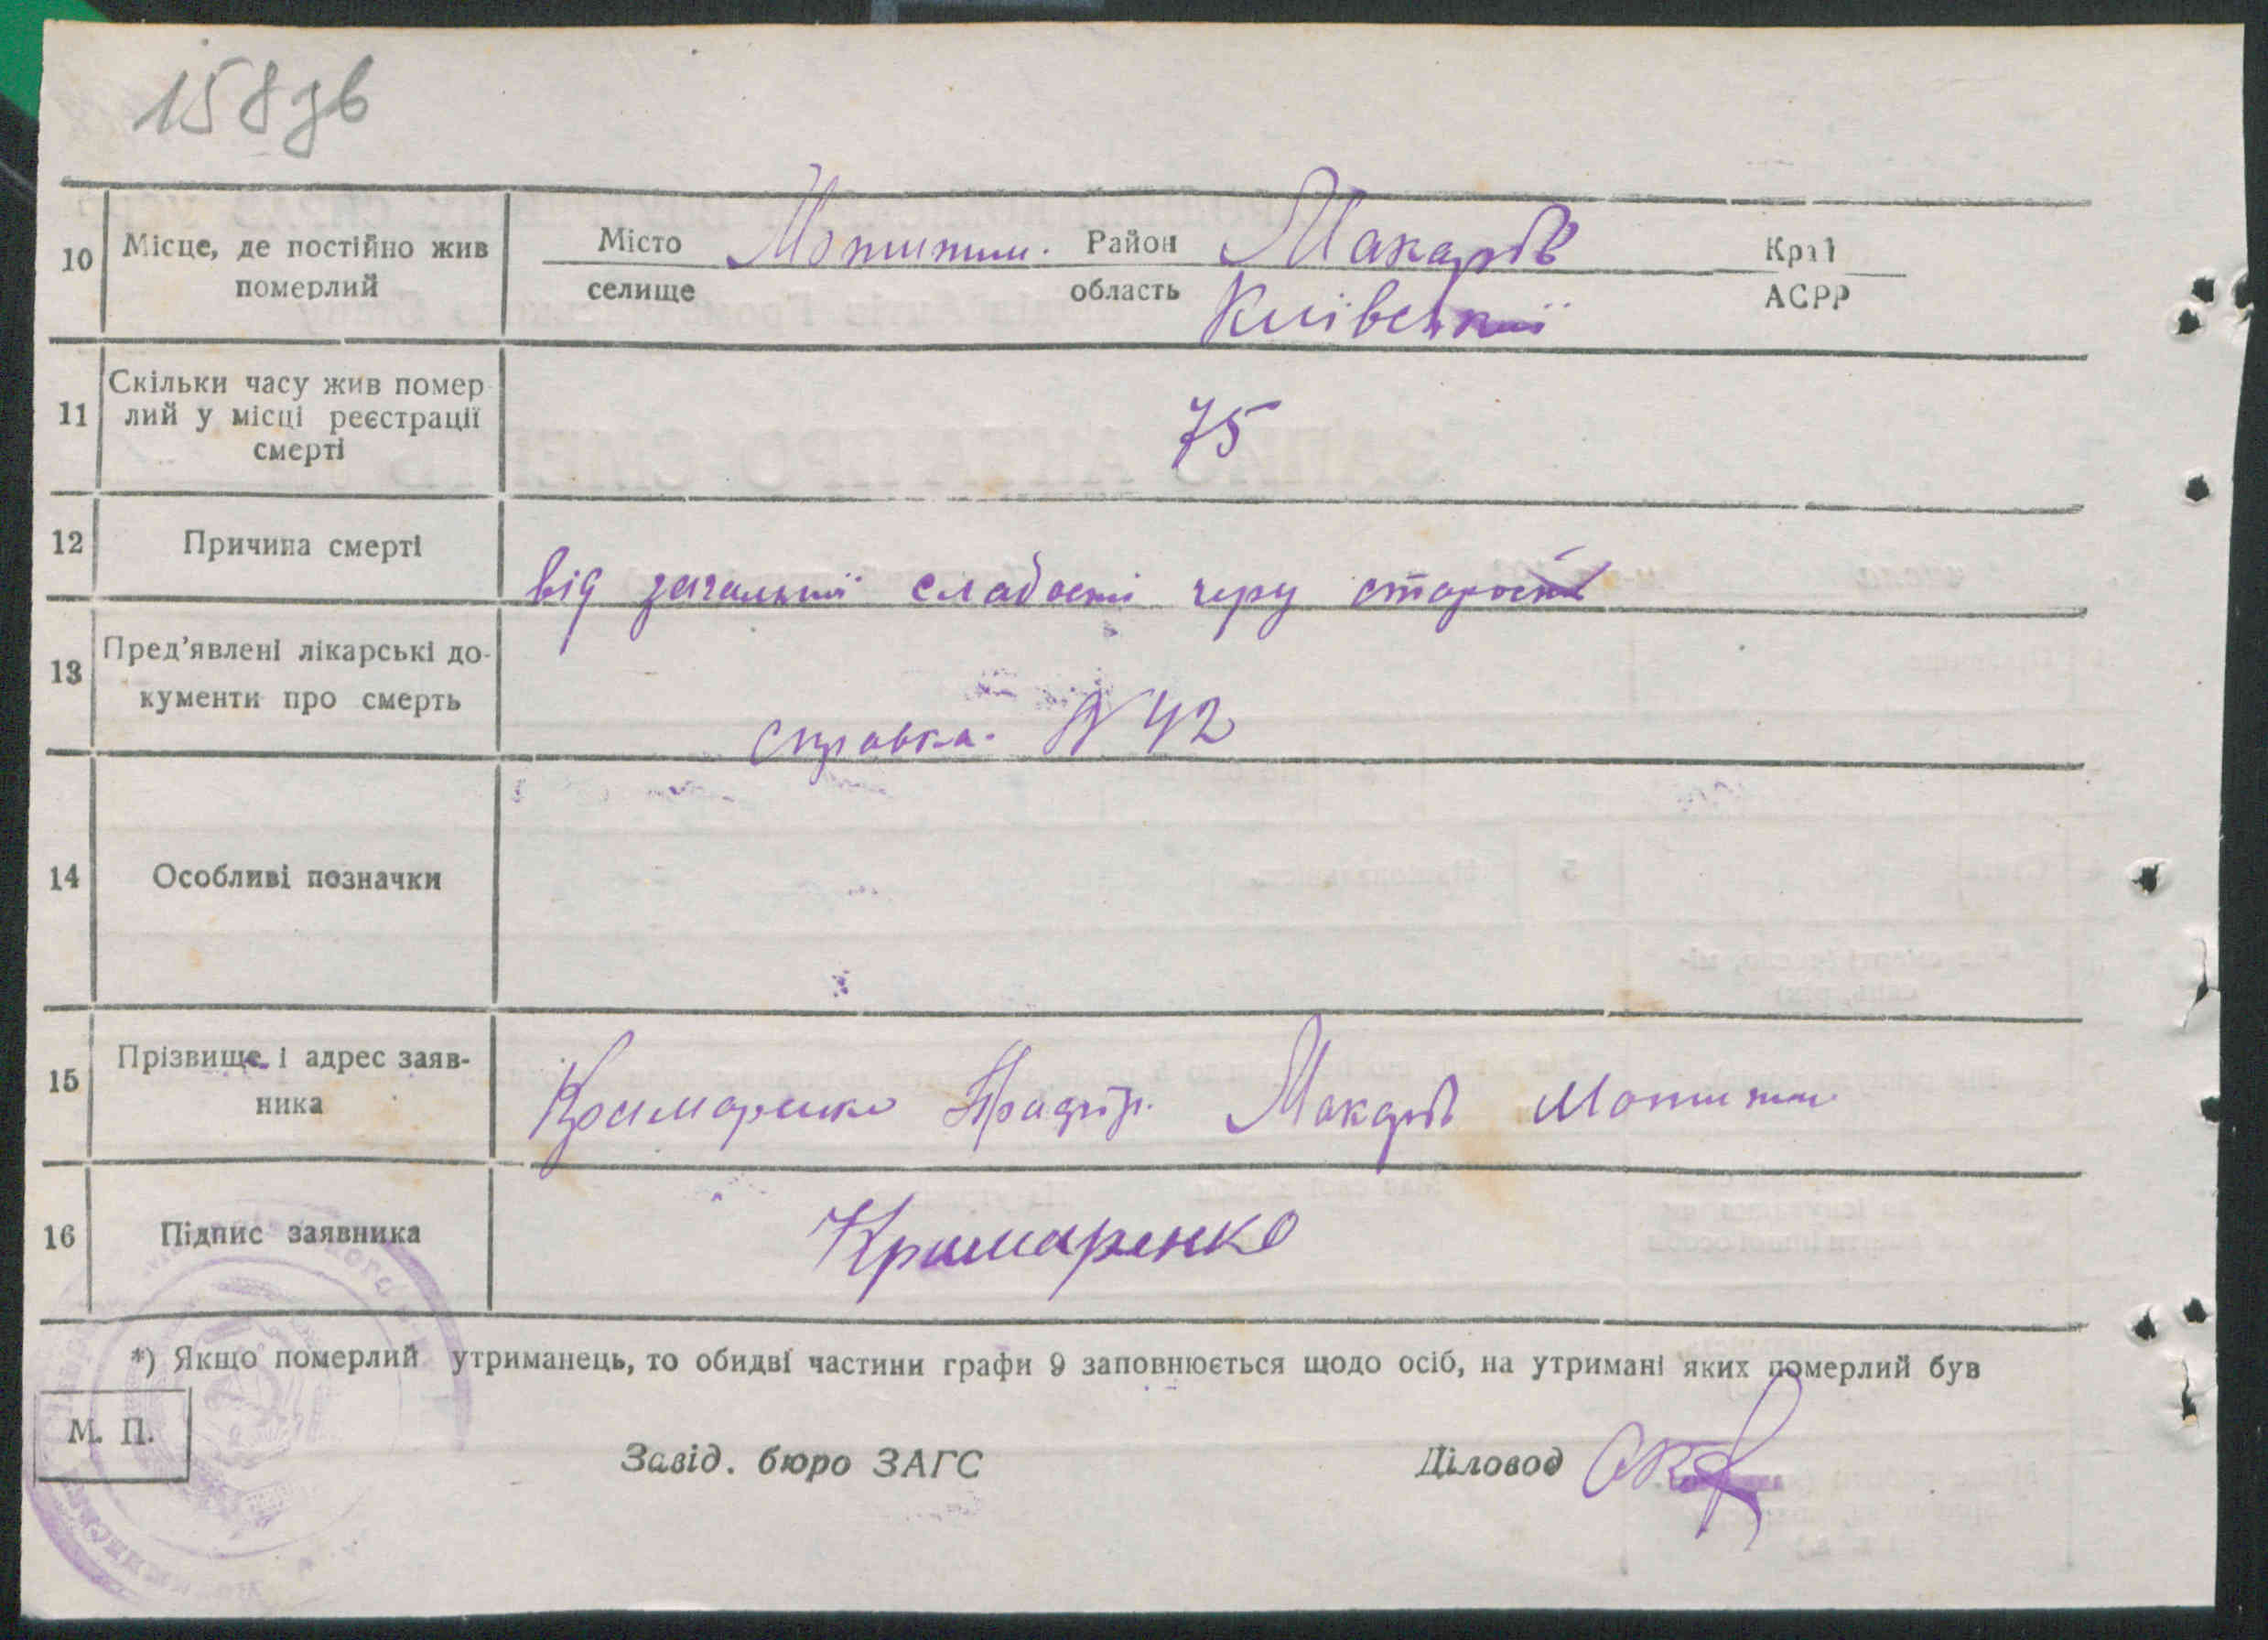 158зв
10 Місце, де постійно жив Місто Мотижин. Район Макарів Край
померлий селище область Київської АСРР
11 Скільки часу жив помер-
лий у місці реєстрації
смерті
75
12 Причина смерті
від загальної слабості через старость
13 Пред'явлені лікарські до-
кументи про смерть
справка. N 42
14 Особливі позначки
15 Прізвище і адрес заяв-
ника
Кримаренко Макарів Мотижин
16 Підпис заявника Кримаренко
*) Якщо померлий утриманець, то обидві частини графи 9 заповнюється щодо осіб, на утримані яких померлий був
М. П.
Завід. бюро ЗАГС Діловод